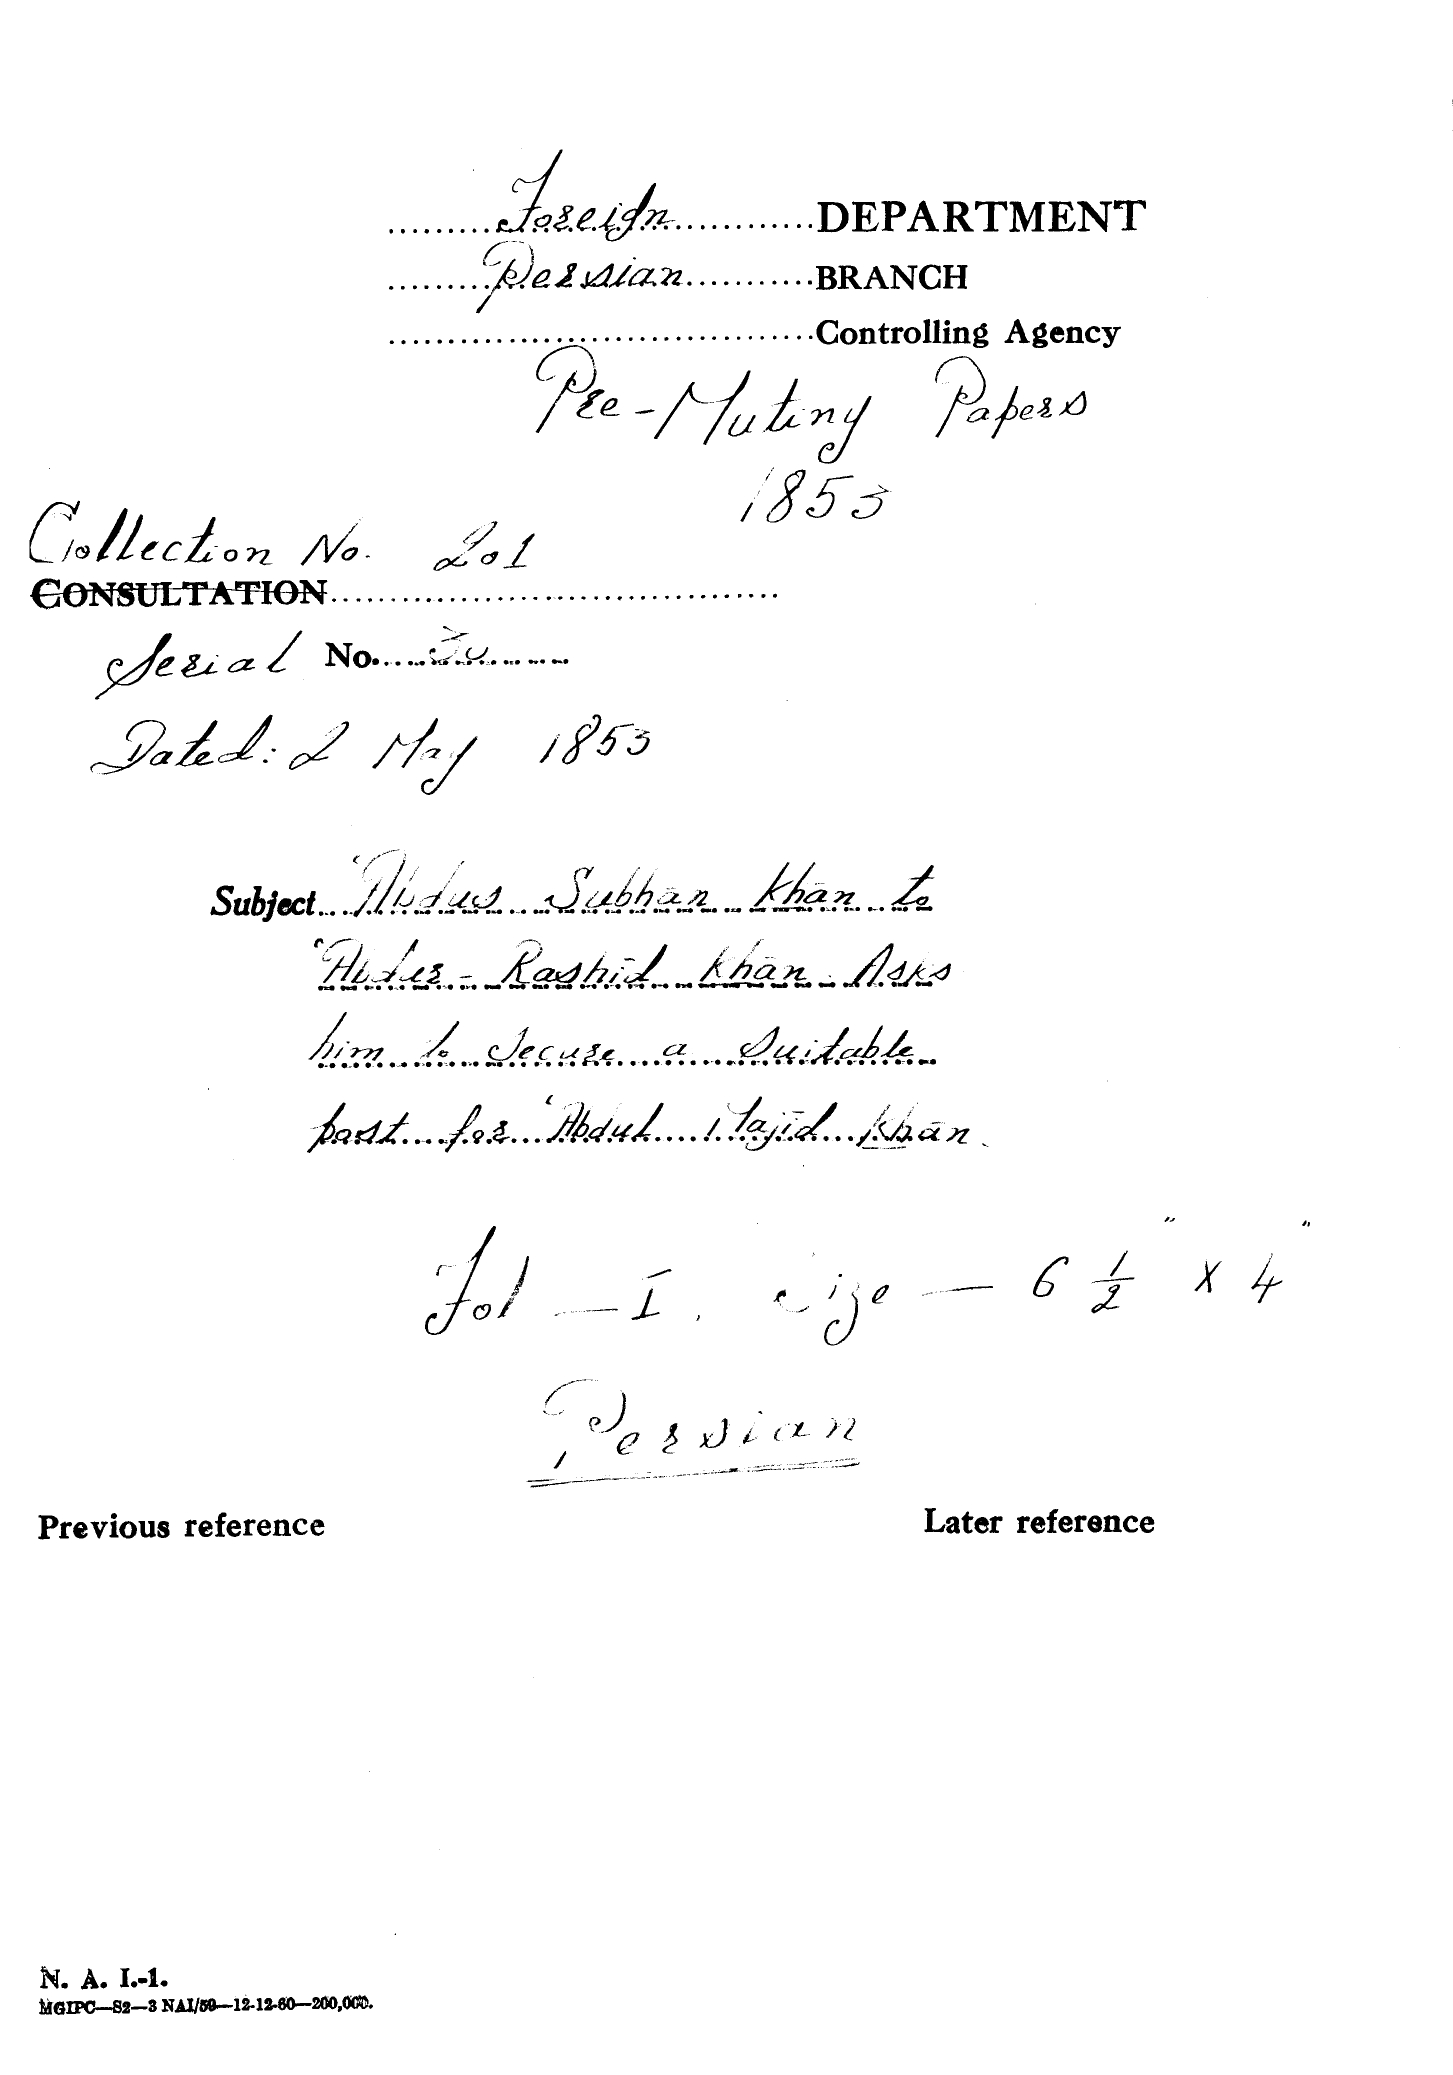 Foreign DEPARTMENT
Persian BRANCH
Controlling Agency
Pre-Mutiny Papers
1853
Collection No. 201
CONSULTATION
Serial No.
Dated: 2 May 1853
Subject 'Abdus Subhān Khān to
'Abdur-Rashīd Khān. Asks
him to secure a suitable
post for 'Abdul Majīd Khān.
Fol — I. Size — 6 1/2" x 4"
Persian
Previous reference
Later reference
N. A. I.-1.
MGIPC—S2—3 NAI/59—12-12-60—200,000.